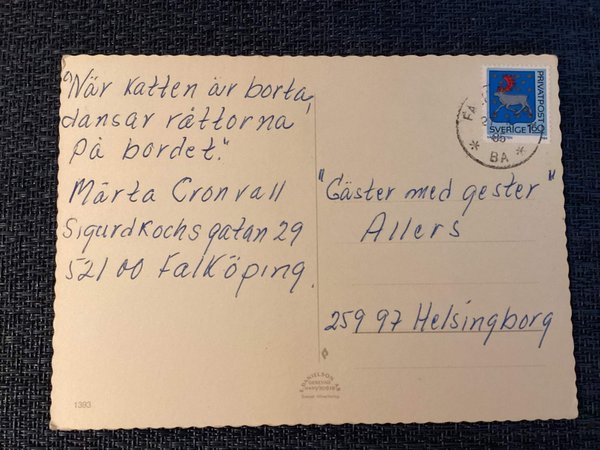 "När katten är borta,
dansar råttorna
på bordet."
Märta Cronvall
Sigurd Kochs gatan 29
52100 Falköping.
PRIVATPOST
SVERIGE 160
FA
85
* BA *
"Gäster med gester"
Allers
259 97 Helsingborg
1393